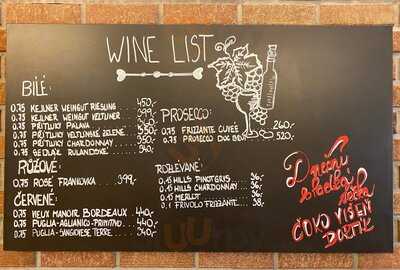 WINE LIST
BÍLÉ:
0.75 KEJLNER WEINGUT RIESLING 450,-
0.75 KEJLNER WEINGUT VELTLINER
0.75 PŘÍTLUKY PÁLAVA
0.75 PŘÍTLUKY VELTLÍNSKÉ ZELENÉ
0.75 PŘÍTLUKY CHARDONNAY
0.75 SEDLÁK RULANDSKÉ 340,-
RŮŽOVÉ:
0.75 ROSÉ FRANKOVKA 399,-
ČERVENÉ:
0.75 VIEUX MANOIR BORDEAUX 440,-
0.75 PUGLIA-AGLIANICO-PRIMITIVO 440,-
0.75 PUGLIA-SANGIOVESE, TERRE 340,-
PROSECCO:
0.75 FRIZZANTE CUVÉE 260,-
0.75 PROSECCO DOC BRUT 520,-
ROZLÉVANÉ:
0.1 HILLS PINOT GRIS 36,-
0.1 HILLS CHARDONNAY 36,-
0.1 MERLOT 36,-
0.1 FRIVOLO FRIZZANTE 38,-
Dnešní
sladká
tečka
ČOKO VIŠEŇ
DORTÍK